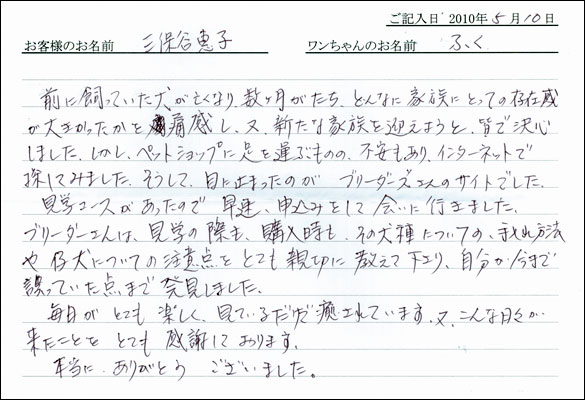 ご記入日 2010年 5月 10日
お客様のお名前 三保谷恵子 ワンちゃんのお名前 ふく
前に飼っていた犬が亡くなり、数ヶ月がたち、どんなに家族にとっての存在感
が大きかったかを痛感し、又、新たな家族を迎えようと、皆で決心
しました。しかし、ペットショップに足を運ぶものの、不安もあり、インターネットで
探してみました。そうして、目に止まったのが ブリーダーズさんのサイトでした。
見学コースがあったので 早速、申込みをして 会いに行きました。
ブリーダーさんは、見学の際も、購入時も、その犬種についての、手入れ方法
や 仔犬についての注意点を とても 親切に 教えて下さり、自分が今まで
誤っていた点まで 発見しました。
毎日が とても 楽しく、見ているだけで癒されています。又、こんな日々が
来たことを とても 感謝しております。
本当に ありがとう ございました。